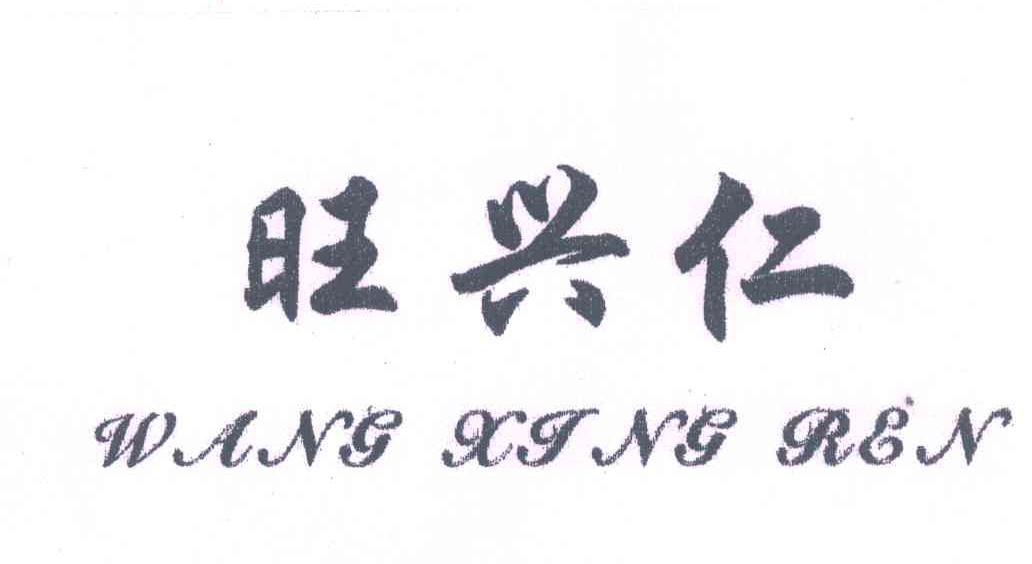 旺兴仁
WANG XING REN